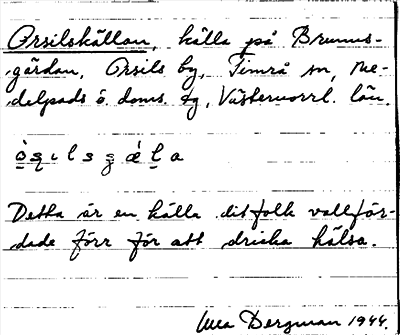 Orsilskällan, källa på Brunns-
gården, Orsils by, Timrå sn, Me-
delpads ö. doms. sg, Västernorrl. län.
Detta är en källa dit folk vallfär-
dade förr för att dricka hälsa.
Bergman 1944.